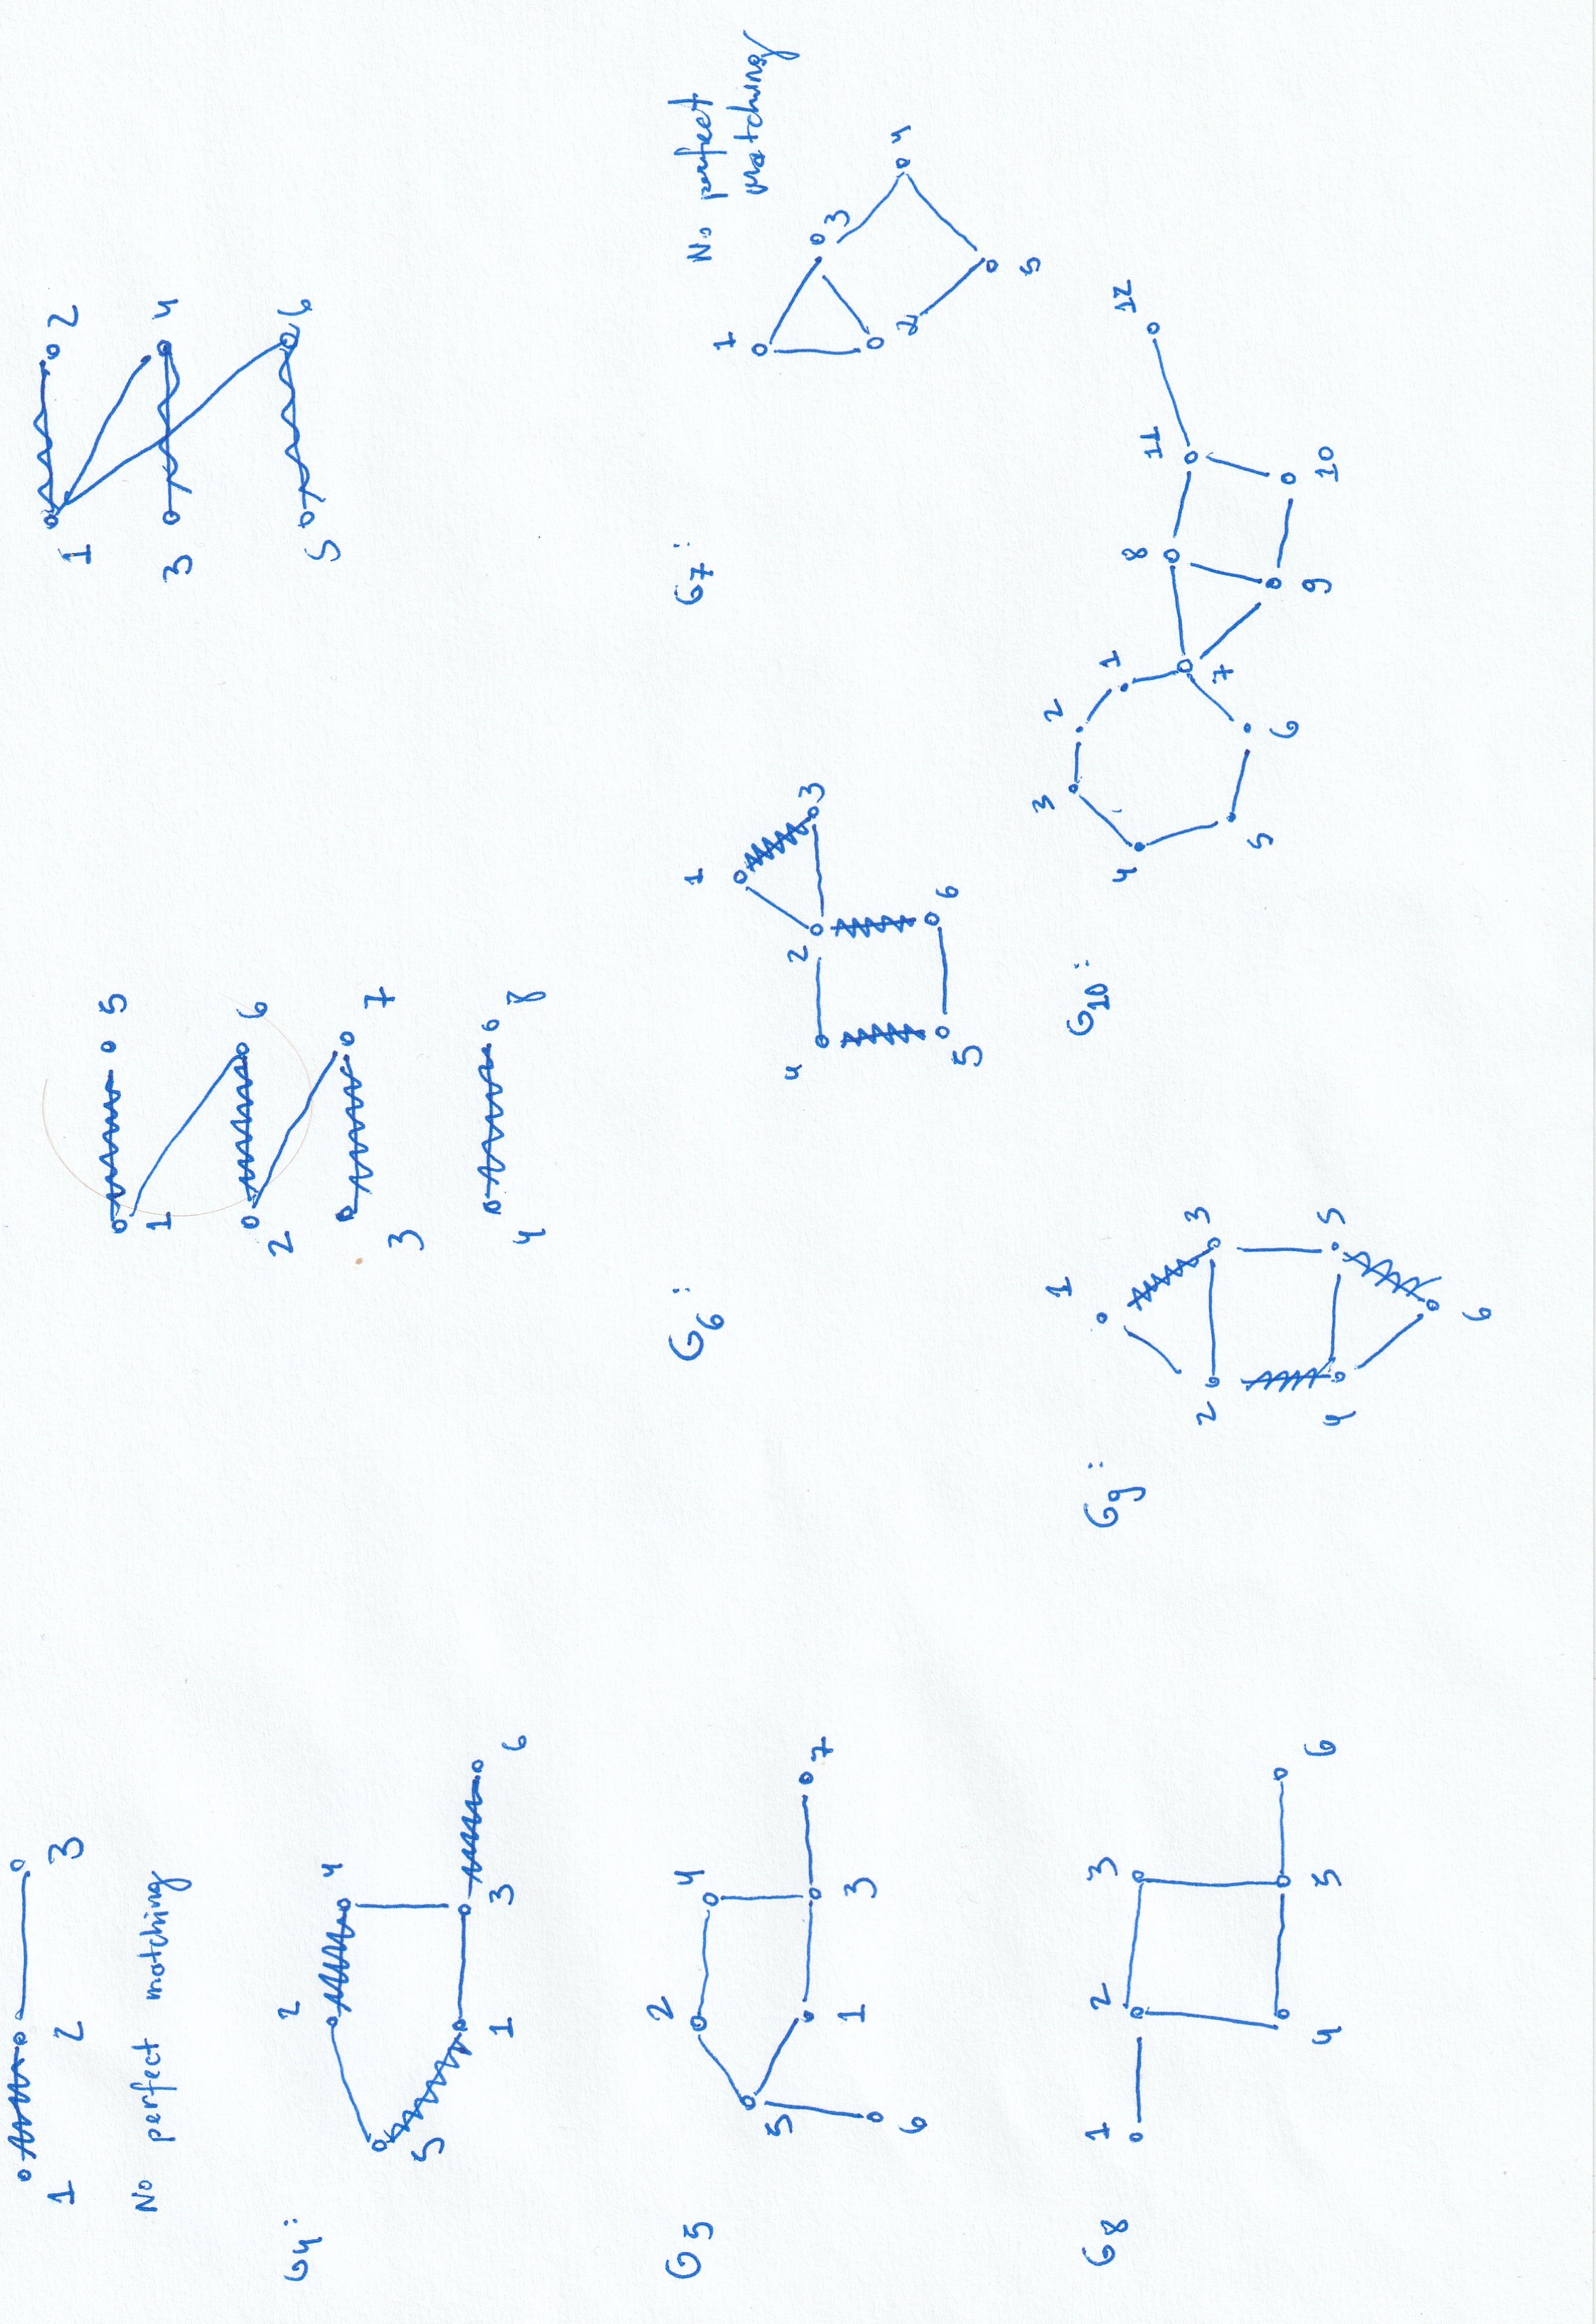 1 2 3
No perfect matching
1 5
2 6
3 7
4 8
1 2
3 4
5 6
G4:
2 4
5
1 3 6
G5
2 4
5
1 3 7
6
G6:
1
4 2 3
5 6
G7:
No perfect
matching
1
3
2 4
5
G8
1 2 3
4 5 6
G9:
1
2 3
4 5
6
G10:
3 2
4 1
8 11 12
7
5 6
9 10